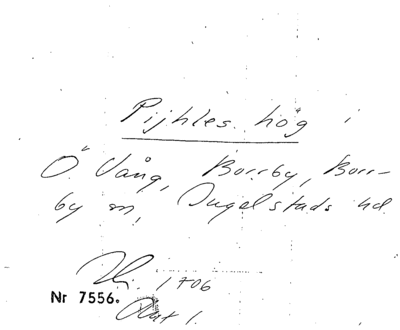 Pijhles hög i
Ö. Vång, Borrby, Borr-
by sn, Ingelstads hd
1706
Nr 7556.
Akt 1.